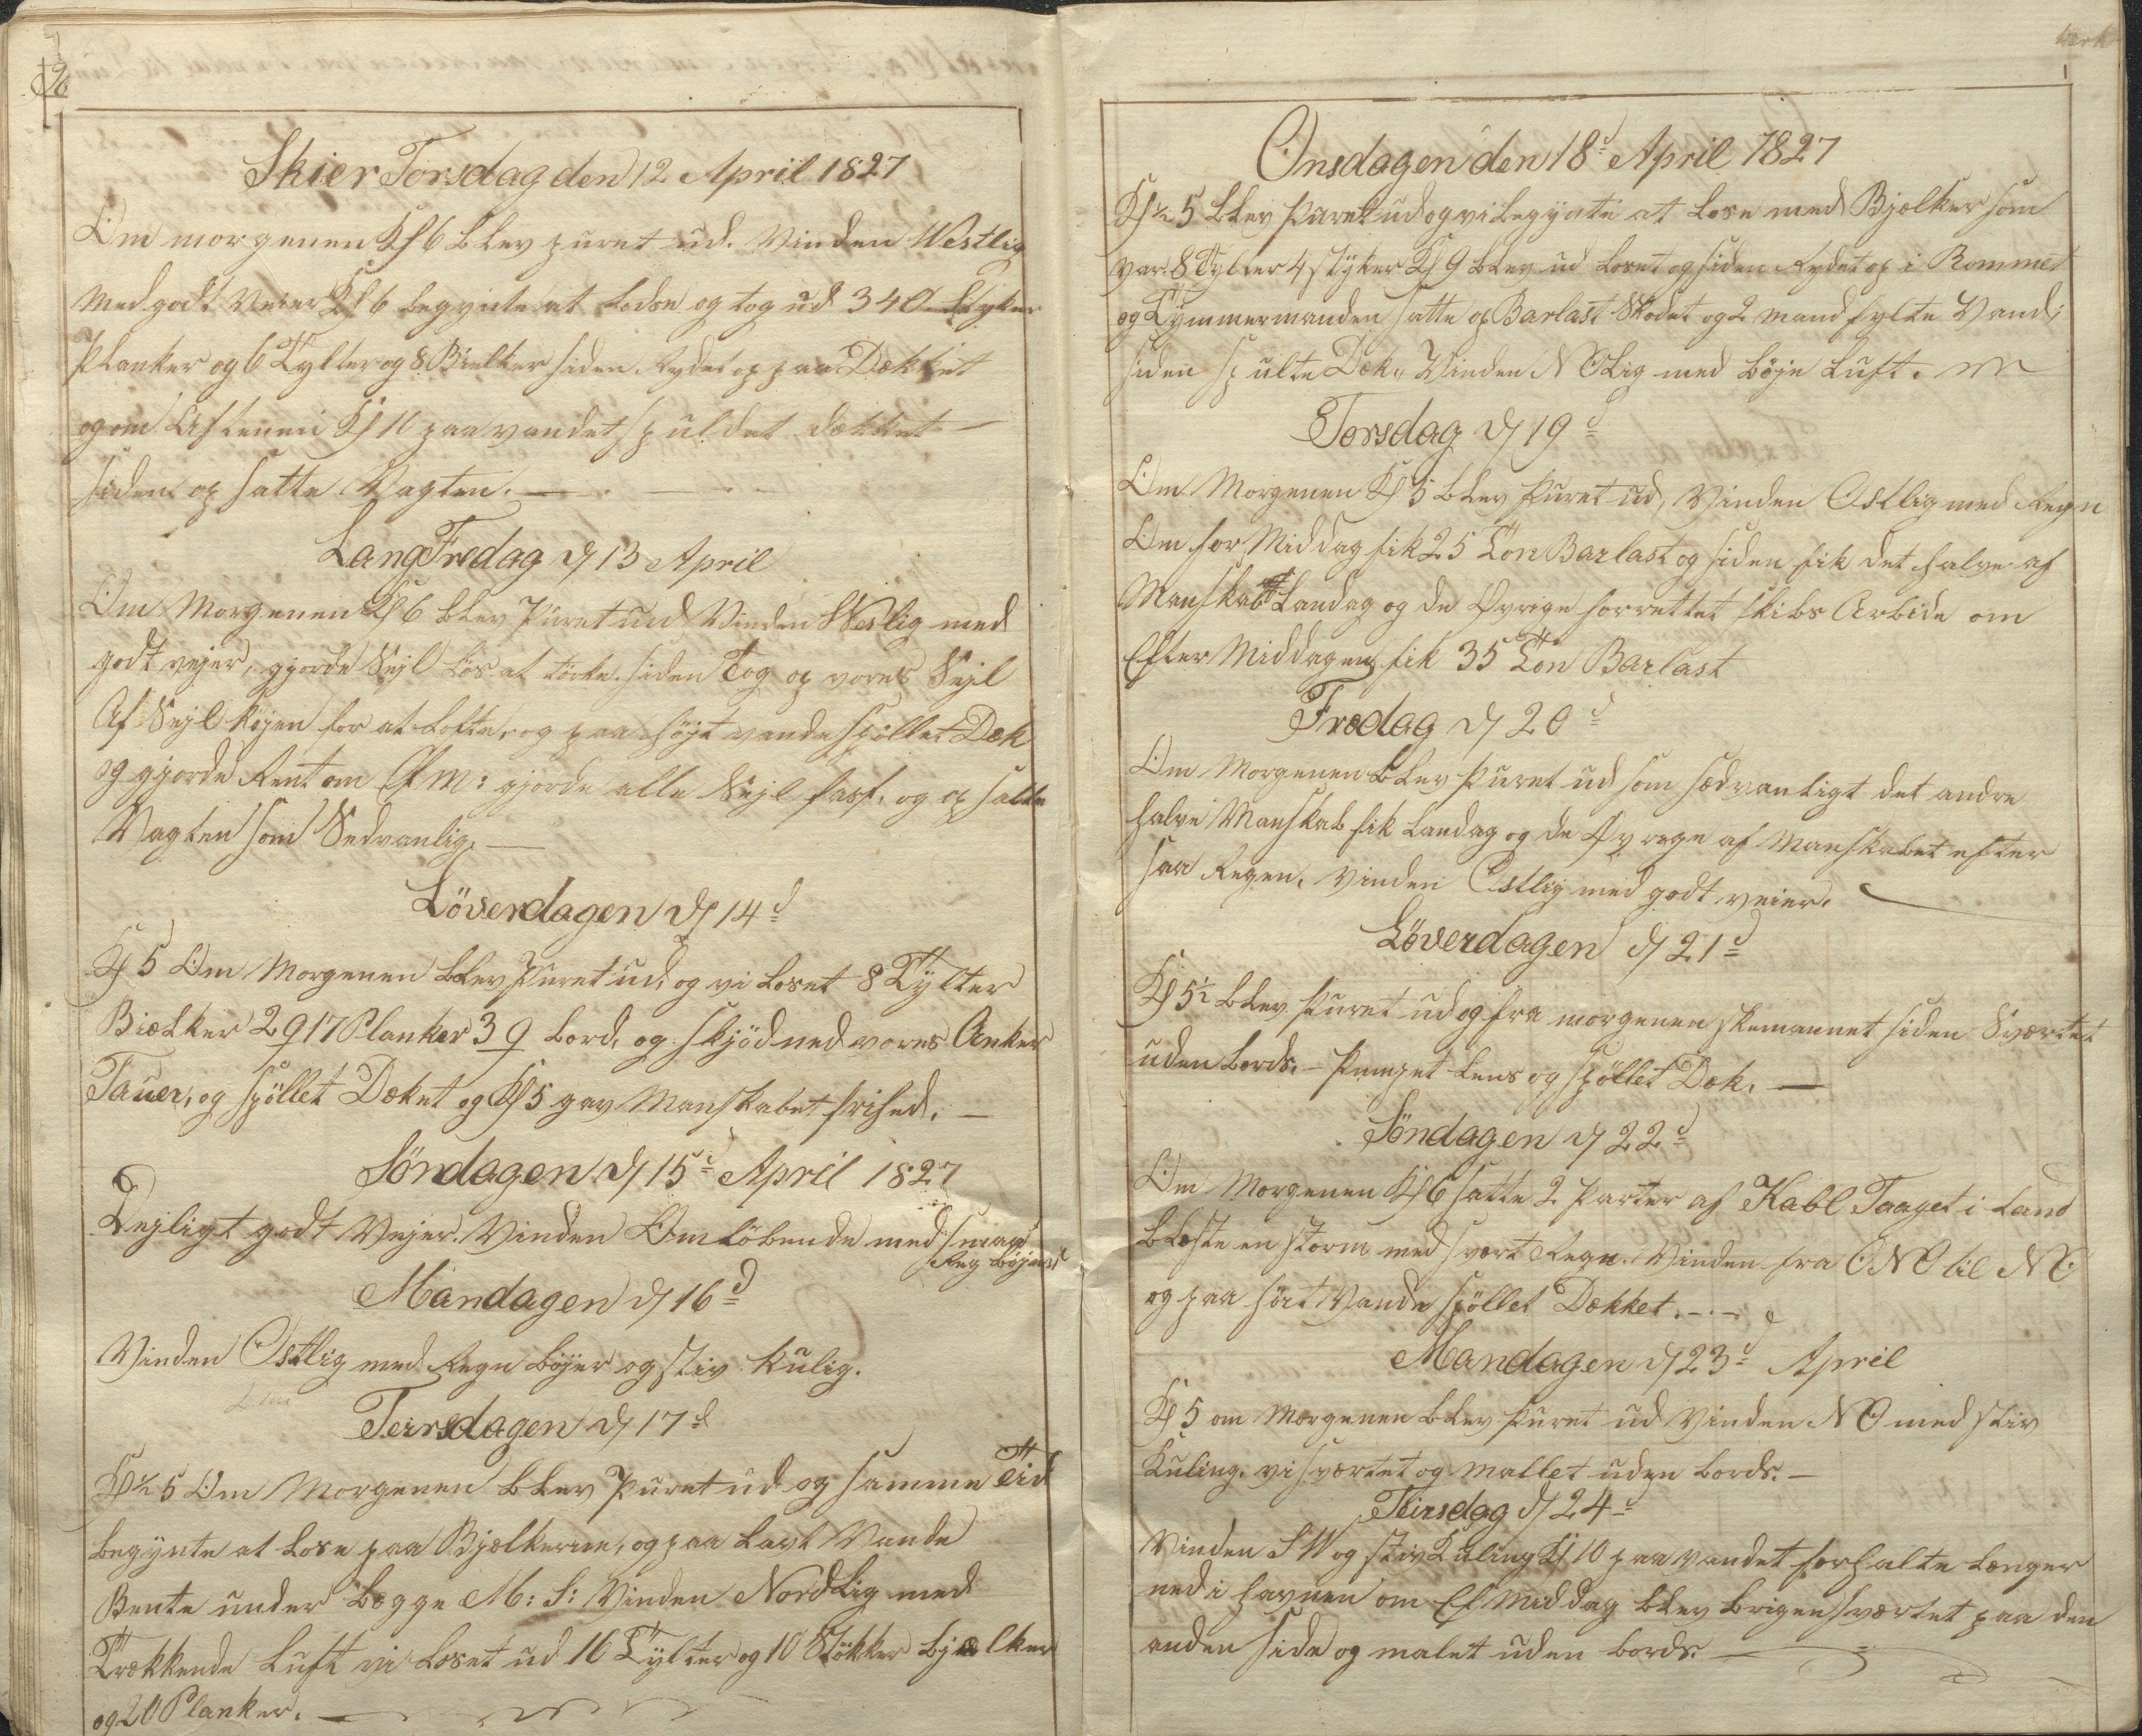 26
Skier Torsdag den 12 April 1827
Om morgenen Kl 6 blev puret ud. Vinden Westlig
Med godt Veier Kl 6 begynte at lodse og tog ud 340 Styker
Planker og 6 Tylter og 8 Bielker siden Rydet op paa Dækket
og om Aftenen Kl 10 paa vandet spuldet Dækket —
siden op satte Vagten. —
Lang Fredag d 13 April
Om Morgenen Kl 6 blev Puret ud Vinden Weslig med
godt vejer, gjorde Sejl Løs at törke. siden Tog op vores Sejl
Af Sejl Køjen for at Lofte, og paa højt vande spöllet Dæk
og gjorde Rent om Ef m: gjorde alle Sejl fast, og op satte
Vagten som Sedvanlig. —
Löverdagen d 14d
Kl 5 Om Morgenen blev Puret ud, og vi Loset 8 Tylter
Biælker 2917 Planker 39 bord, og skjöd ned vores Anker
Tauer, og spöllet Dæket og Kl 5 gav Manskabet frihed. —
Söndagen d 15d April 1827
Dejligt godt Vejer. Vinden Omlöbende med smaa
Reg böjer
Mandagen d 16d
Vinden Ostlig med Regn böjer og stiv Kulig.
Teirsdagen d 17d
Kl ½ 5 Om Morgenen blev Puret ud og samme Tid
begynte at Lose paa Bjælkerne, og paa Lavt Vande
Bente under begge M: S: Vinden Nordlig med
Trækkende Luft vi Loset ud 16 Tylter og 10 Stökker bjælker
og 20 Planker. —
Onsdagen den 18d April 1827
Kl ½ 5 blev Puret ud og vi begynte at Lose med Bjælker som
var 8 Tylter 4 styker Kl 9 blev ud Loset og siden Rydet op i Rommet
og Tymmermanden satte op Barlast Skodet og 2 mand fylte Vand;
siden spulte Dæk. Vinden NOlig med böje Luft.
Torsdag d 19d
Om Morgenen Kl 5 blev Puret ud, Vinden Ostlig med Regn
Om for Middag fik 25 Tön Barlast og siden fik det halve af
Manskabet Landag og de Øvrige forrettet skibs Arbide om
Efter Middagen fik 35 Tön Barlast
Fredag d 20d
Om Morgenen blev Puret ud som sædvanligt det andre
halve Manskab fik Landag og de Øvrege af Manskabet efter
saa Regen. Vinden Ostlig med godt veier.
Löverdagen d 21d
Kl 5½ blev Puret ud og fra morgenen skemannet siden Sværtet
uden bords. – Pumpet Lens og spöllet Dæk. —
Söndagen d 22d
Om Morgenen Kl 6 satte 2 Parter af Kabl Taaget i Land
blæste en storm med svært Regn. Vinden fra ONO til NO
og paa höit Vande spöllet Dækket. —
Mandagen d 23d April
Kl 5 om Morgenen blev Puret ud Vinden NO med stiv
Kuling. vi sværtet og Mallet uden bords. —
Teirsdag d 24d
Vinden SW og stiv Kuling Kl 10 paa vandet forhalte længer
ned i havnen om Ef Middag blev brigen sværtet paa den
anden side og malet uden bords. —